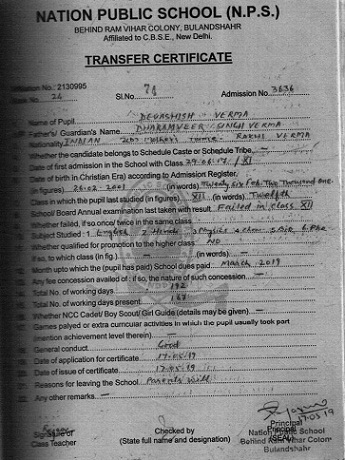 NATION PUBLIC SCHOOL (N.P.S.)
BEHIND RAM VIHAR COLONY, BULANDSHAHR
Affiliated to C.B.S.E., New Delhi.
TRANSFER CERTIFICATE
Affiliation No. : 2130995
No. 24 Sl.No. 74 Admission No. 3636
Name of Pupil DEVASHISH VERMA
Father's/ Guardian's Name DHARAMVEER SINGH VERMA
Nationality INDIAN VERMA
Whether the candidate belongs to Schedule Caste or Schedule Tribe —
Date of first admission in the School with Class 29.06.17 / XI
Date of birth in Christian Era) according to Admission Register,
(in figures) 26-02-2001 (in words) Twenty six Feb Two Thousand one.
Class in the pupil last studied (in figures) XII (in words) Twelfth
School/ Board Annual examination last taken with result Failed in class XII
Whether failed, if so once/ twice in the same class
Subject Studied : 1 English 2 Hindi 3 Physics 4 Chem 5 Bio 6. P.Ed
Whether qualified for promotion to the higher class NO
If so, to which class (in fig.) — (in words) —
Month upto which the (pupil has paid) School dues paid March 2019
Any fee concession availed of : if so, the nature of such concession —
Total No. of working days 192
Total No. of working days present 167
Whether NCC Cadet/ Boy Scout/ Girl Guide (details may be given) —
Games palyed or extra curricular activities in which the pupil usually took part
(mention achievement level therein) —
General conduct Good
Date of application for certificate 17-05-19
Date of issue of certificate 17-05-19
Reasons for leaving the School Parents Will
Any other remarks —
17-05-19
Signature of
Class Teacher
Checked by
(State full name and designation)
Principal
(SEAL)
Principal
Nation Public School
Behind Ram Vihar Colony
Bulandshahr